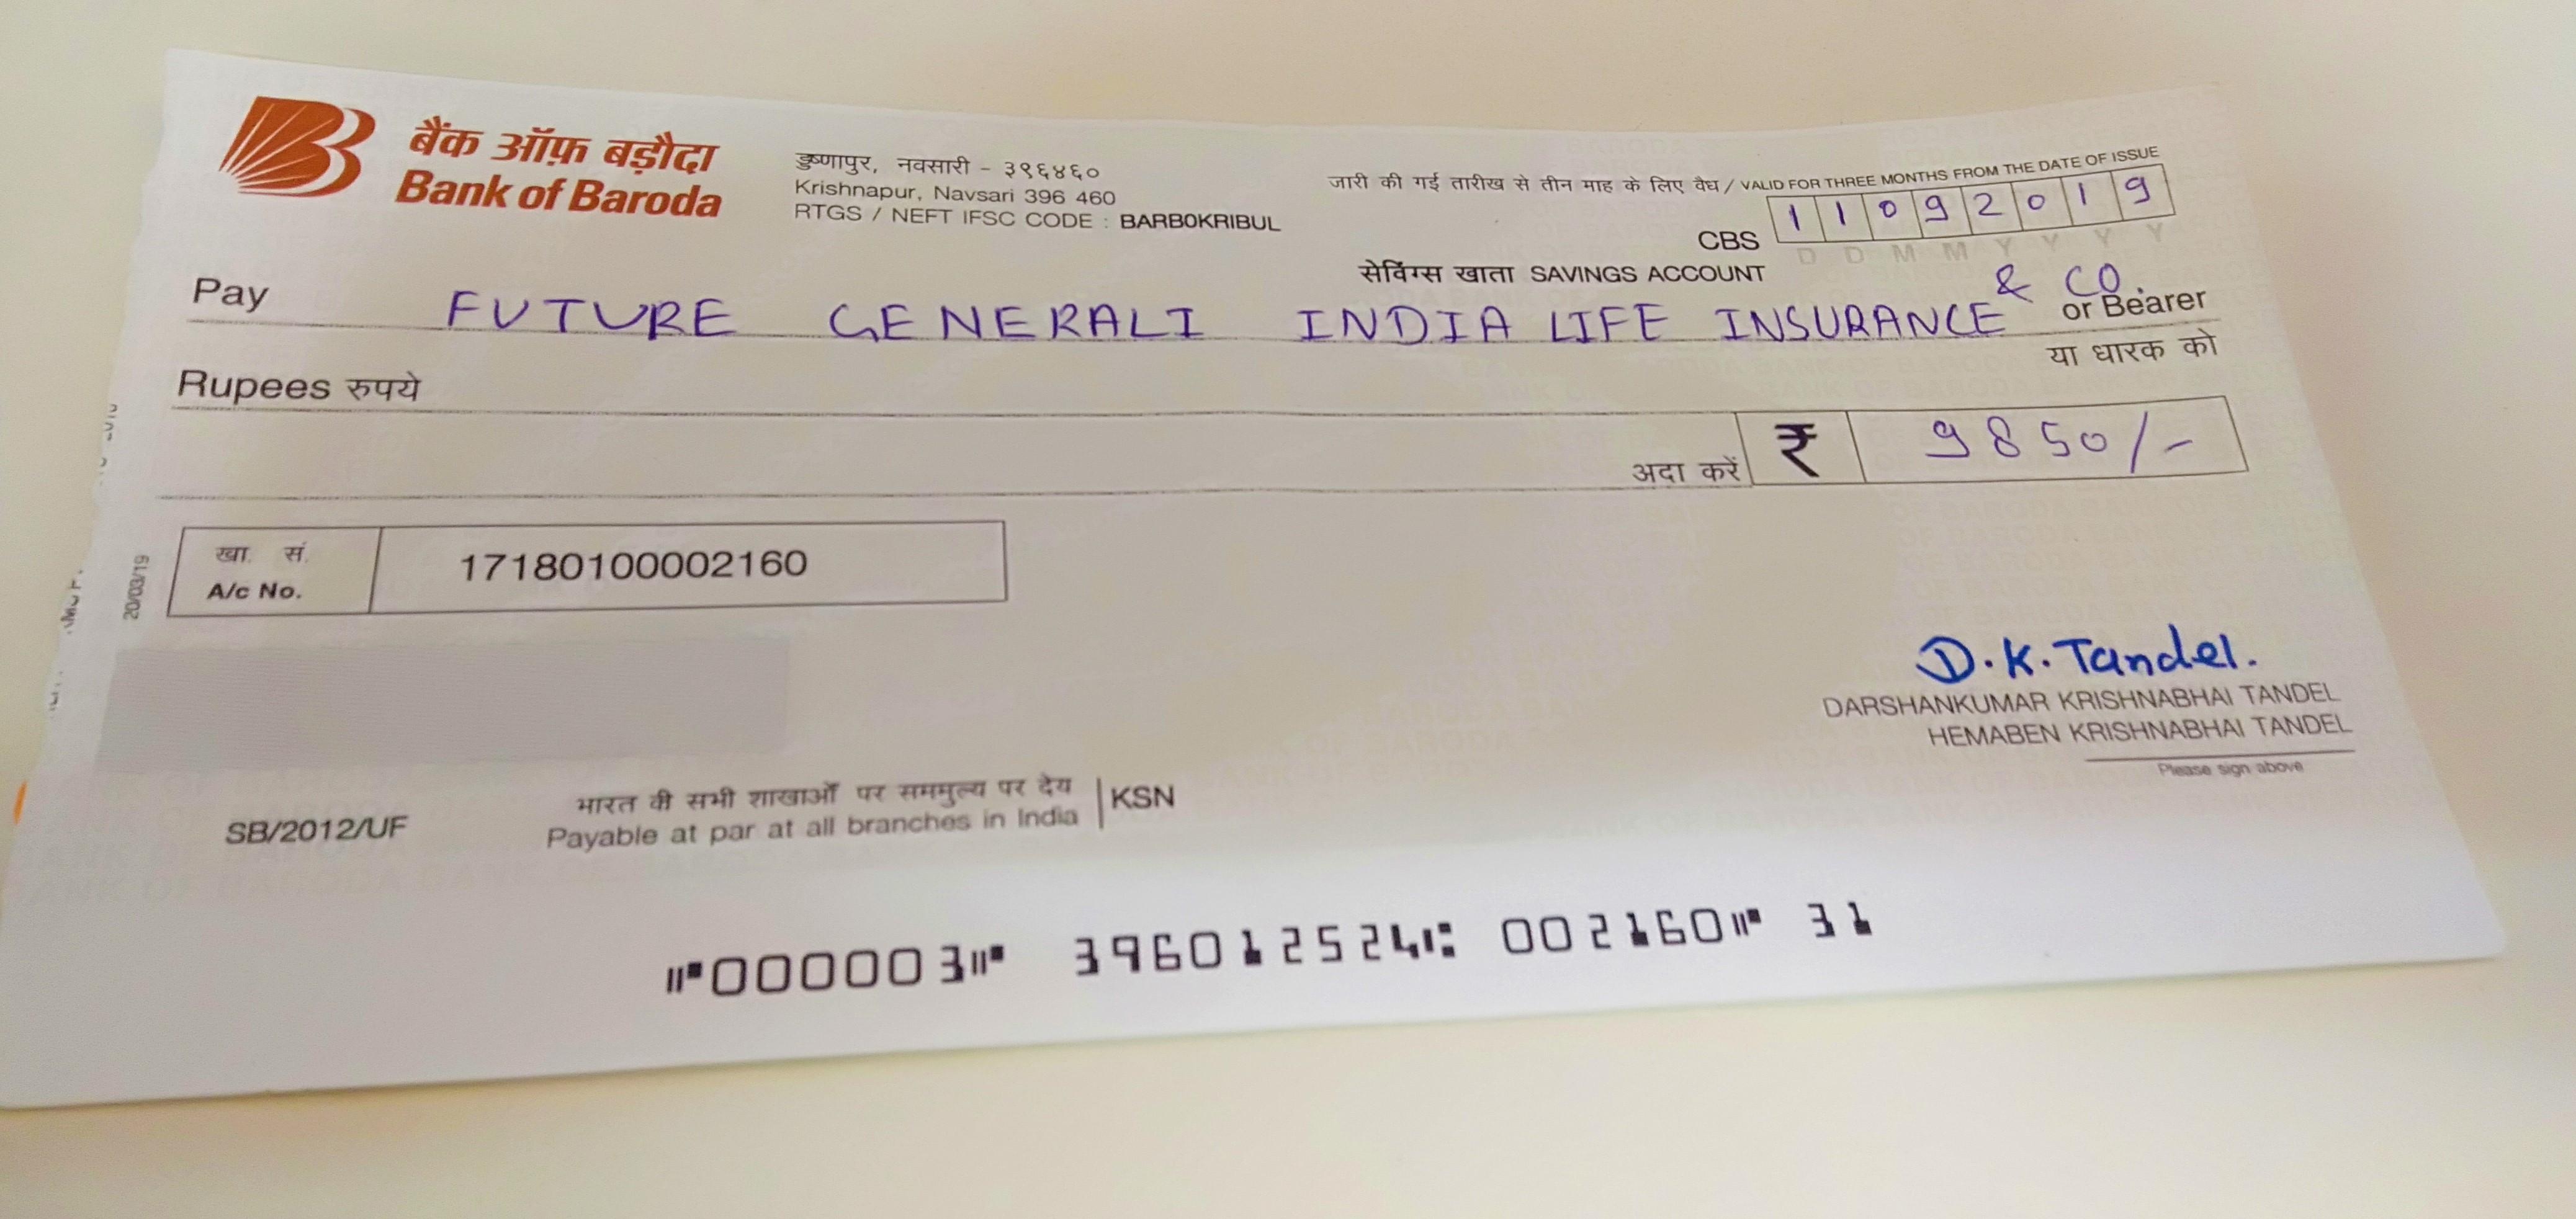 बैंक ऑफ़ बड़ौदा
Bank of Baroda
डुष्णापुर, नवसारी - ३९६४६०
Krishnapur, Navsari 396 460
RTGS / NEFT IFSC CODE : BARB0KRIBUL
जारी की गई तारीख से तीन माह के लिए वैध / VALID FOR THREE MONTHS FROM THE DATE OF ISSUE
CBS 1 1 0 9 2 0 1 9
D D M M Y Y Y Y
सेविंग्स खाता SAVINGS ACCOUNT
Pay FUTURE GENERALI INDIA LIFE INSURANCE & CO. or Bearer
या धारक को
Rupees रुपये
अदा करें ₹ 9850/-
खा. सं.
A/c No. 17180100002160
20/03/19
D.K. Tandel.
DARSHANKUMAR KRISHNABHAI TANDEL
HEMABEN KRISHNABHAI TANDEL
Please sign above
भारत की सभी शाखाओं पर सममुल्य पर देय
Payable at par at all branches in India | KSN
SB/2012/UF
⑈000003⑈ 396012524⑆ 002160⑈ 31